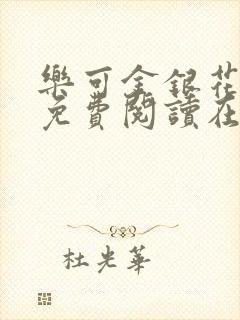 樂可金銀花
免費閱讀在
杜光華